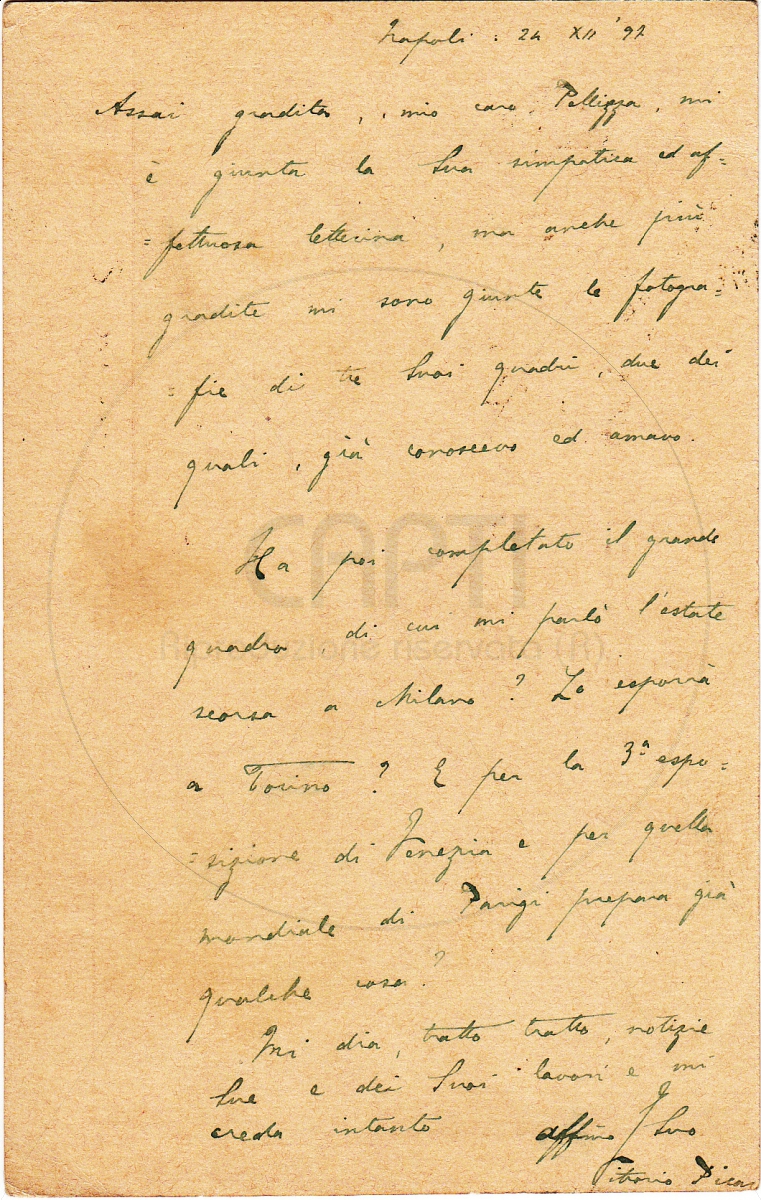 Napoli: 24 XII '97
Assai gradita, mio caro Pellizza, mi
è giunta la Sua simpatica ed af=
=fettuosa letterina, ma anche più
gradite mi sono giunte le fotogra=
=fie di tre Suoi quadri, due dei
quali, già conoscevo ed amavo.
Ha poi completato il grande
quadro, di cui mi parlò l'estate
scorsa a Milano? Lo esporrà
a Torino? E per la 3ª espo=
=sizione di Venezia e per quella
mondiale di Parigi prepara già
qualche cosa?
Mi dia, tratto tratto, notizie
Sue e dei Suoi lavori e mi
creda intanto affmo Suo
Vittorio Pica
CAPTI
Riproduzione riservata